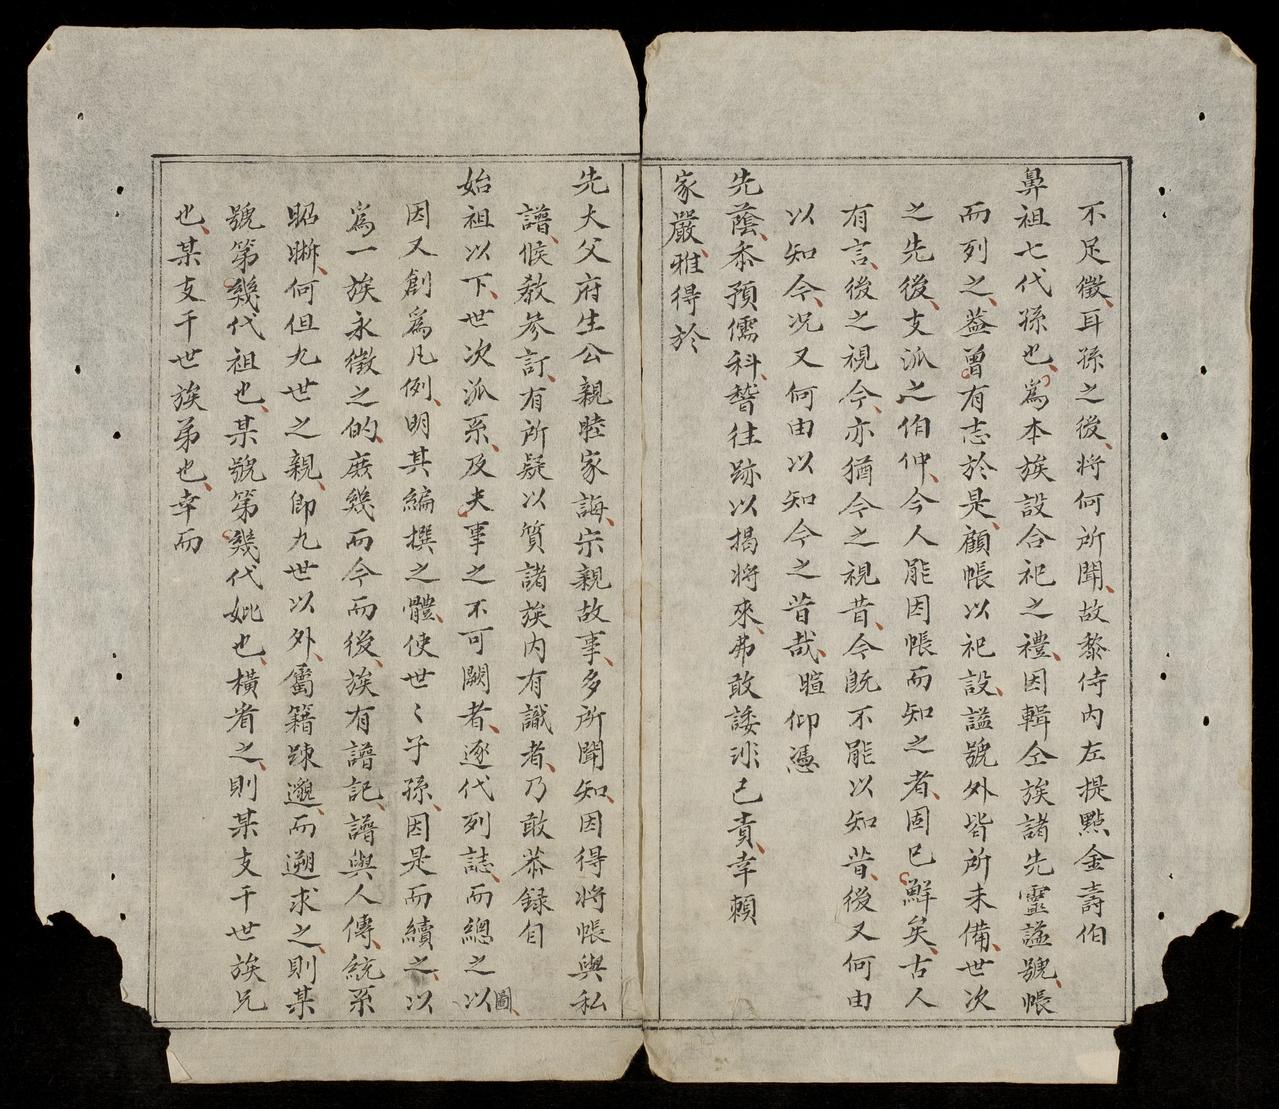 不足徵耳孫之後將何所聞故黎侍内左提點金壽伯
鼻祖七代孫也爲本族設合祀之禮因輯仝族諸先靈謚號帳
而列之蓋曾有志於是顧帳以祀設謚號外皆所未備世次
之先後支派之伯仲今人能因帳而知之者固已鮮矣古人
有言後之視今亦猶今之視昔今旣不能以知昔後又何由
以知今况又何由以知今之昔哉暄仰憑
先蔭忝預儒科瞽往跡以揭將來弗敢諉涉已責幸賴
家嚴雅得於
先大父府生公親睦家誨宗親故事多所聞知因得將帳與私
譜候教參訂有所疑以質諸族内有識者乃敢恭録自
始祖以下世次派系及夫事之不可闕者逐代列誌而總之以圖
因又創爲凡例明其編撰之體使世〻子孫因是而續之以
爲一族永徵之的庶幾而今而後族有譜記譜與人傳統系
昭晰何但九世之親卽九世以外屬籍踈邈而遡求之則某
號第幾代祖也某號第幾代妣也橫看之則某支千世族兄
也某支千世族弟也幸而